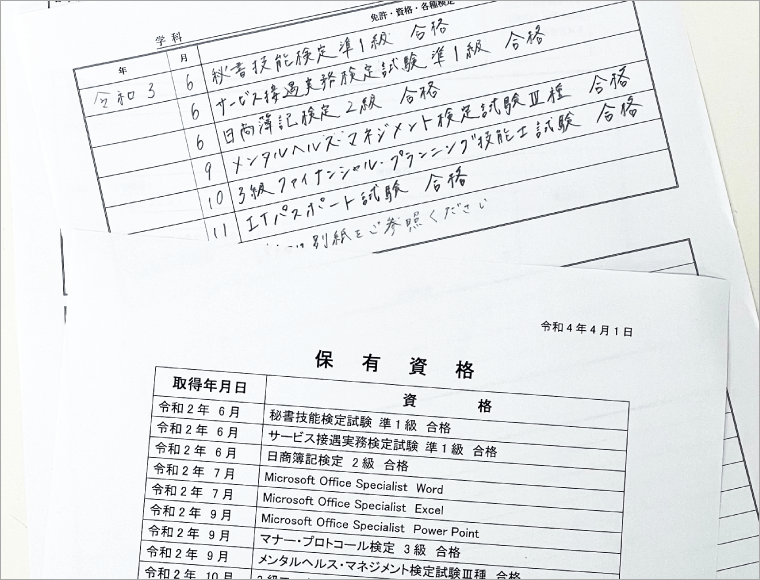 学科
免許・資格・各種検定
年 月
令和3 6 秘書技能検定準1級 合格
6 サービス接遇実務検定試験準1級 合格
6 日商簿記検定2級 合格
9 メンタルヘルス・マネジメント検定試験Ⅲ種 合格
10 3級ファイナンシャル・プランニング技能士試験 合格
11 ITパスポート試験 合格
別紙をご参照ください
令和4年4月1日
保有資格
取得年月日 資格
令和2年 6月 秘書技能検定試験 準1級 合格
令和2年 6月 サービス接遇実務検定試験 準1級 合格
令和2年 6月 日商簿記検定 2級 合格
令和2年 7月 Microsoft Office Specialist Word
令和2年 7月 Microsoft Office Specialist Excel
令和2年 9月 Microsoft Office Specialist Power Point
令和2年 9月 マナー・プロトコール検定 3級 合格
令和2年 9月 メンタルヘルス・マネジメント検定試験Ⅲ種 合格
令和2年 10月